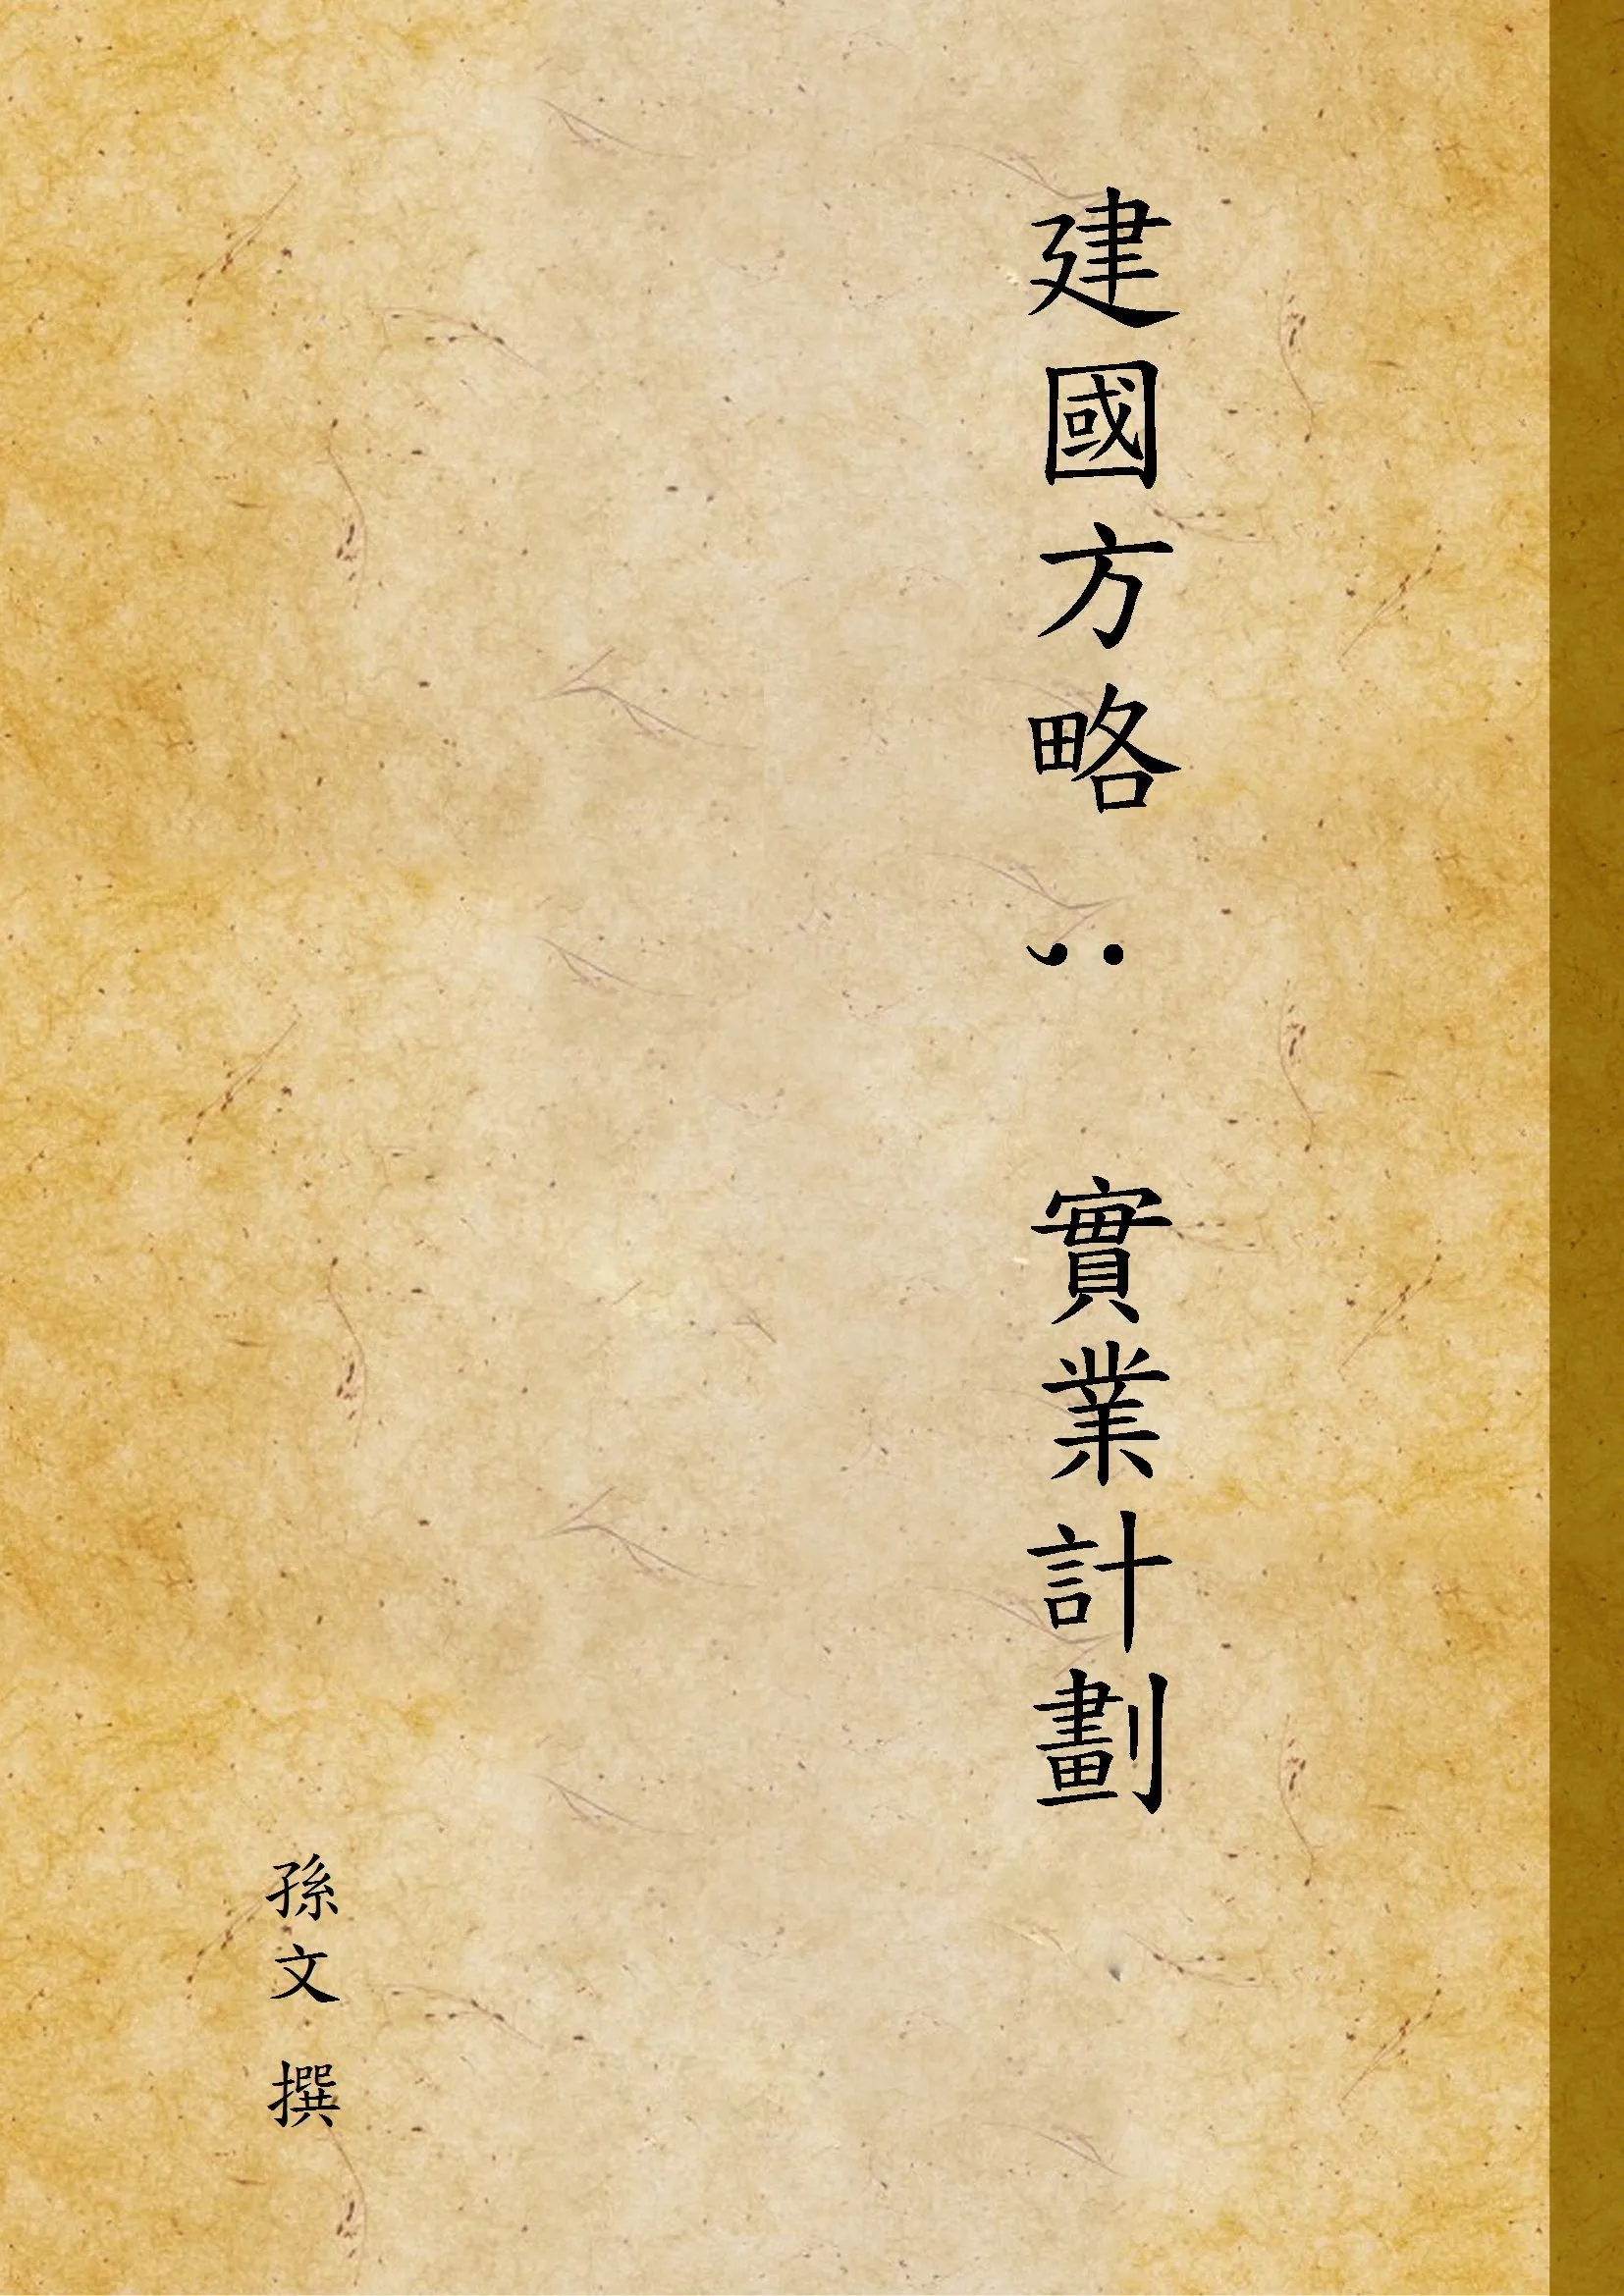 建國方略； 實業計劃
孫文 撰